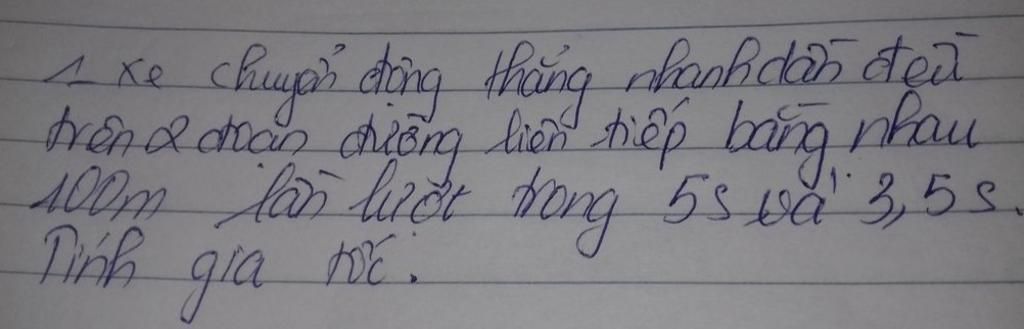 1 xe chuyển động thẳng nhanh dần đều
trên 2 đoạn đường liên tiếp bằng nhau
100m lần lượt trong 5s và 3,5s.
Tính gia tốc.